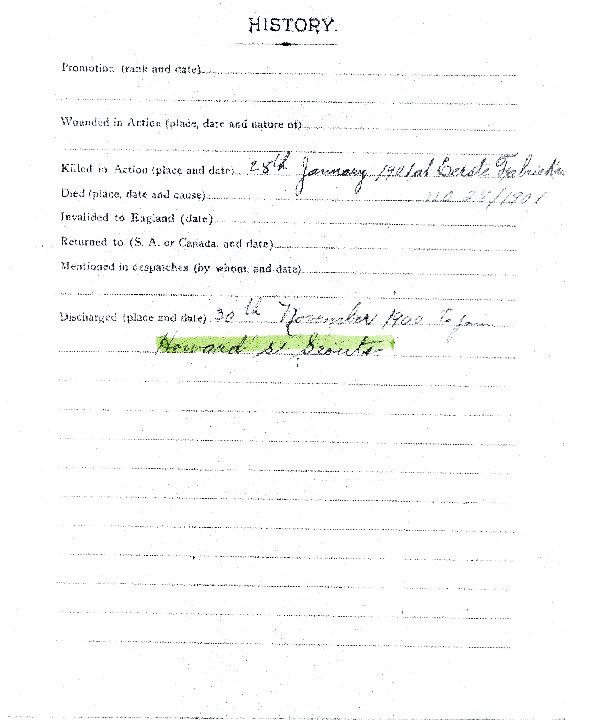 HISTORY.
Promotion (rank and date)
Wounded in Action (place, date and nature of)
Killed in Action (place and date) 28th January 1901 at Eerste Fabrieken
Died (place, date and cause) 28/1901
Invalided to England (date)
Returned to (S. A. or Canada, and date)
Mentioned in despatches (by whom, and date)
Discharged (place and date) 30th November 1900 To join
Howard's Scouts